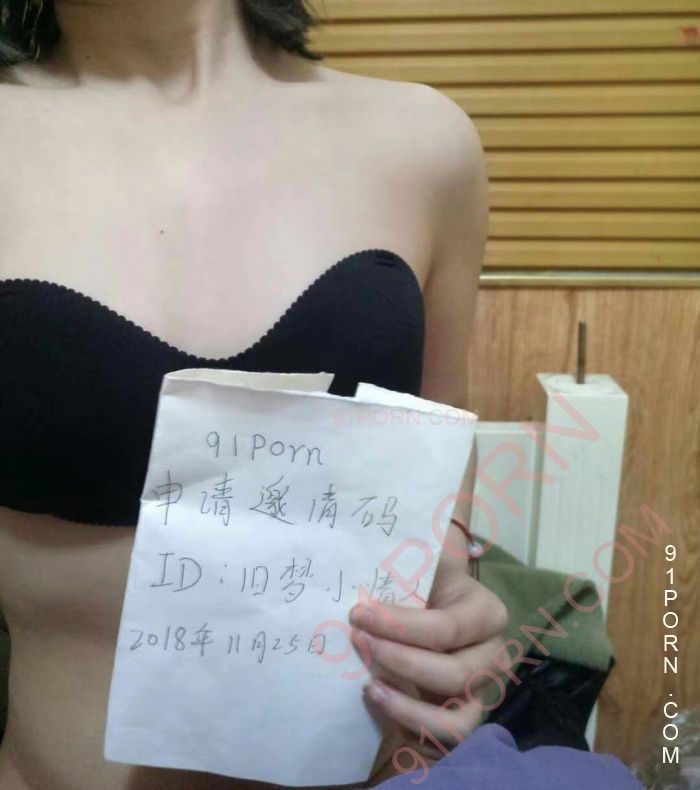 91Porn
申请邀请码
ID：旧梦小情人
2018年11月25日
91PORN.COM
91PORN
91PORN.COM
91PORN.COM